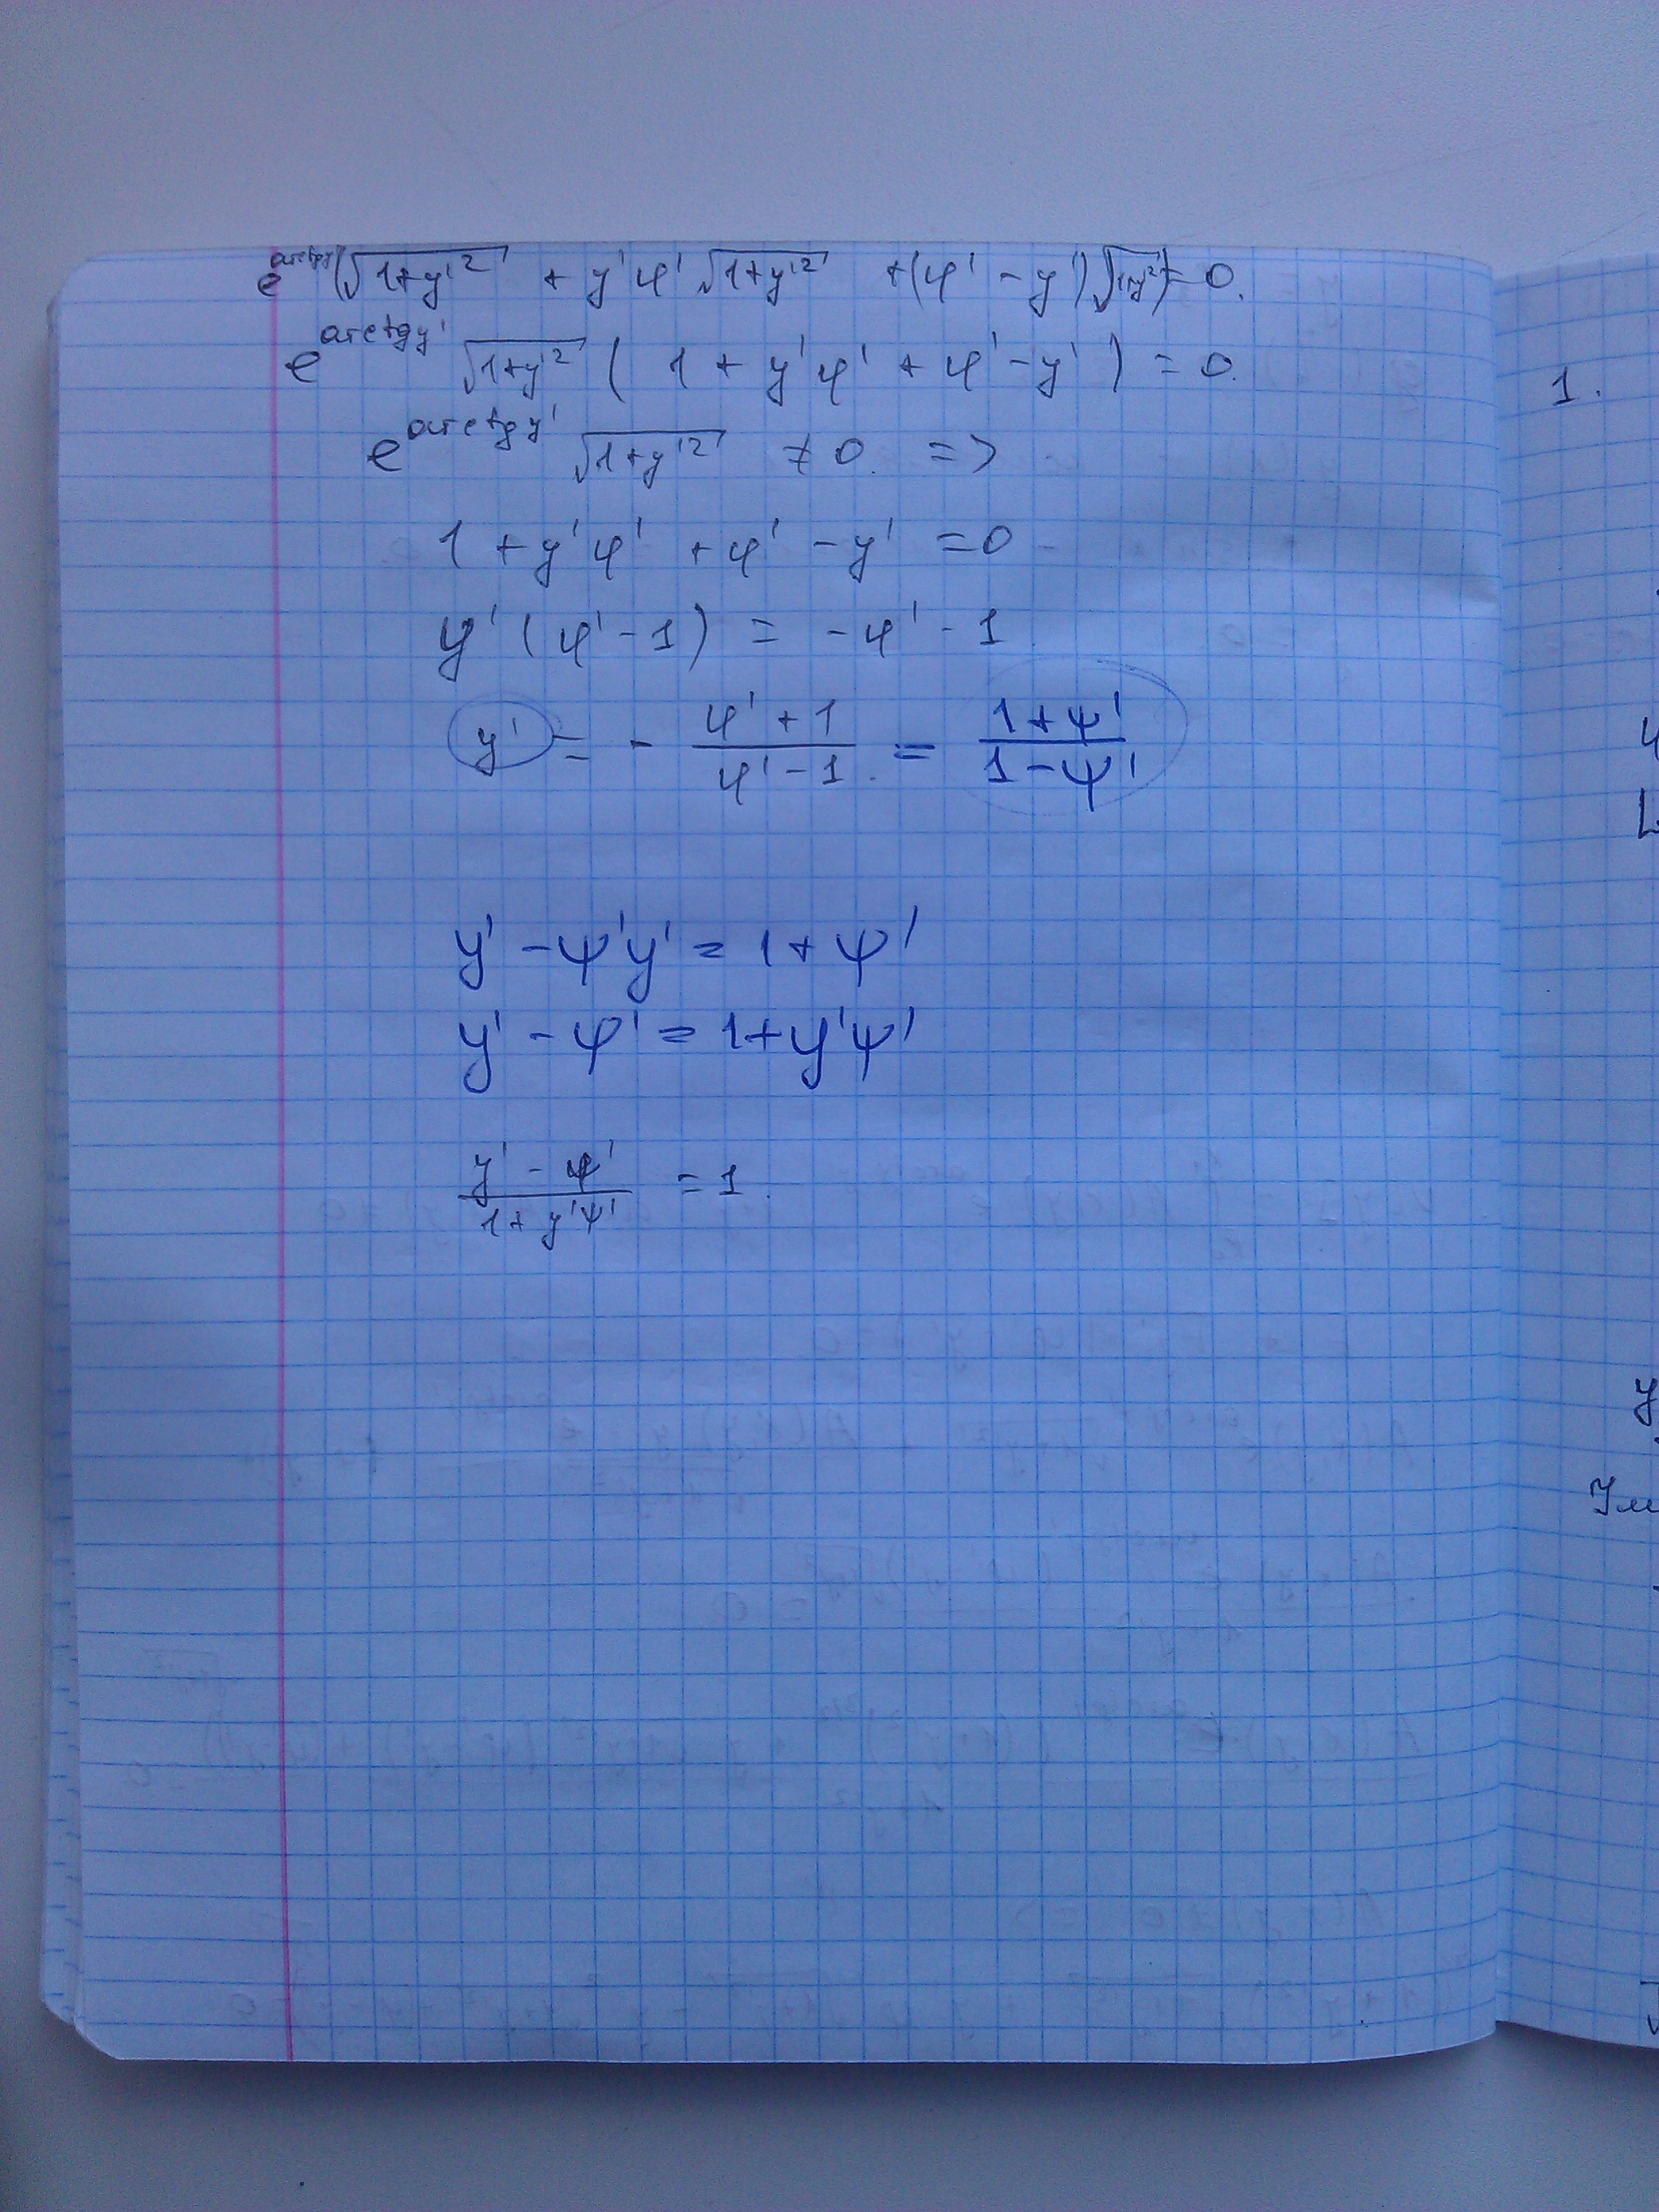 e^{arctg y'} (√(1+y'²) + y'φ' √(1+y'²) + (φ' - y') √(1+y'²)) = 0.
e^{arctg y'} √(1+y'²) ( 1 + y'φ' + φ' - y' ) = 0.
e^{arctg y'} √(1+y'²) ≠ 0. =>
1 + y'φ' + φ' - y' = 0
y' (φ' - 1) = -φ' - 1
y' = - (φ' + 1)/(φ' - 1) = (1 + ψ')/(1 - ψ')
y' - ψ'y' = 1 + ψ'
y' - φ' = 1 + y'ψ'
(y' - φ')/(1 + y'ψ') = 1.
1.